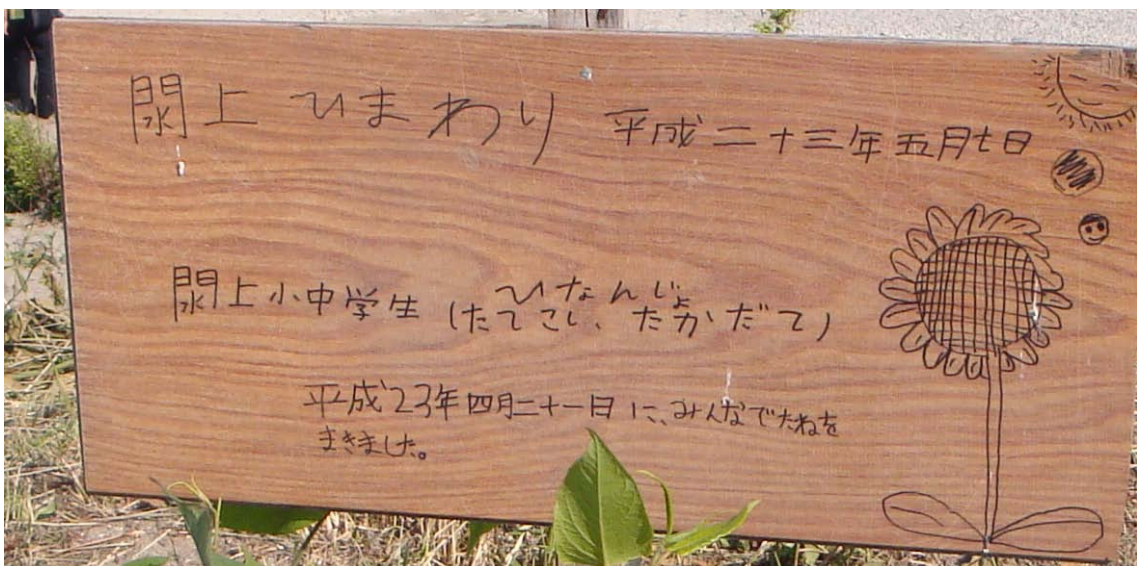 閖上 ひまわり 平成二十三年五月七日
ひなんじょ
閖上小中学生 (たてこし、たかだて)
平成23年四月二十一日に、みんなでたねを
まきました。